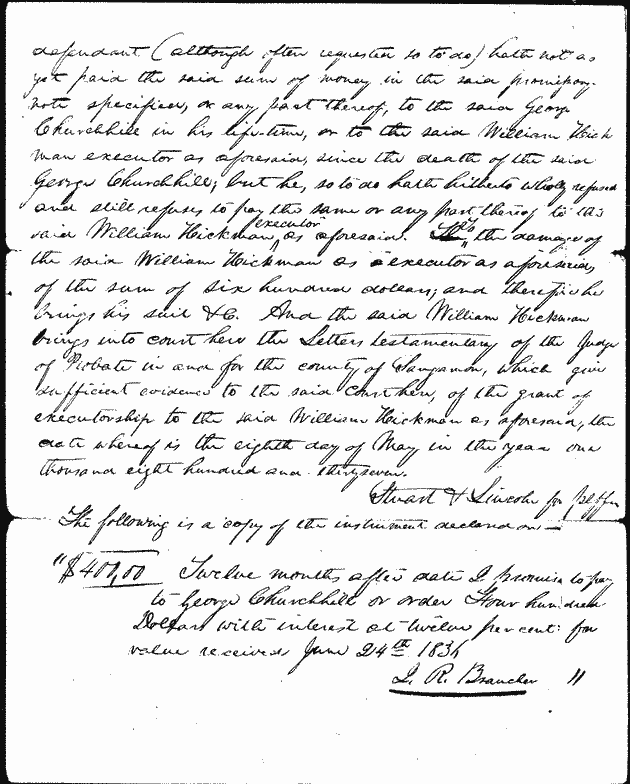 defendant (although often requested so to do) hath not as
yet paid the said sum of money in the said promissory
note specified, or any part thereof, to the said George
Churchhill in his life-time, or to the said William Hick
man executor as aforesaid, since the death of the said
George Churchhill; but he, so to do hath hitherto wholly refused
and still refuses to pay the same or any part thereof to the
executor
said William Hickman, as aforesaid. To the damage of
the said William Hickman as executor as aforesaid,
of the sum of six hundred dollars; and therefore he
brings his suit &C. And the said William Hickman
brings into court here the Letters testamentary of the Judge
of Probate in and for the county of Sangamon, which give
sufficient evidence to the said court here, of the grant of
executorship to the said William Hickman as aforesaid, the
date whereof is the eighth day of May in the year one
thousand eight hundred and thirtyseven.
Stuart & Lincoln for plff
The following is a copy of the instrument declared on—
"$400,00 Twelve months after date I promise to pay
to George Churchhill or order Four hundred
Dollars with interest at twelve per cent: for
value received June 24th 183
J. R. "